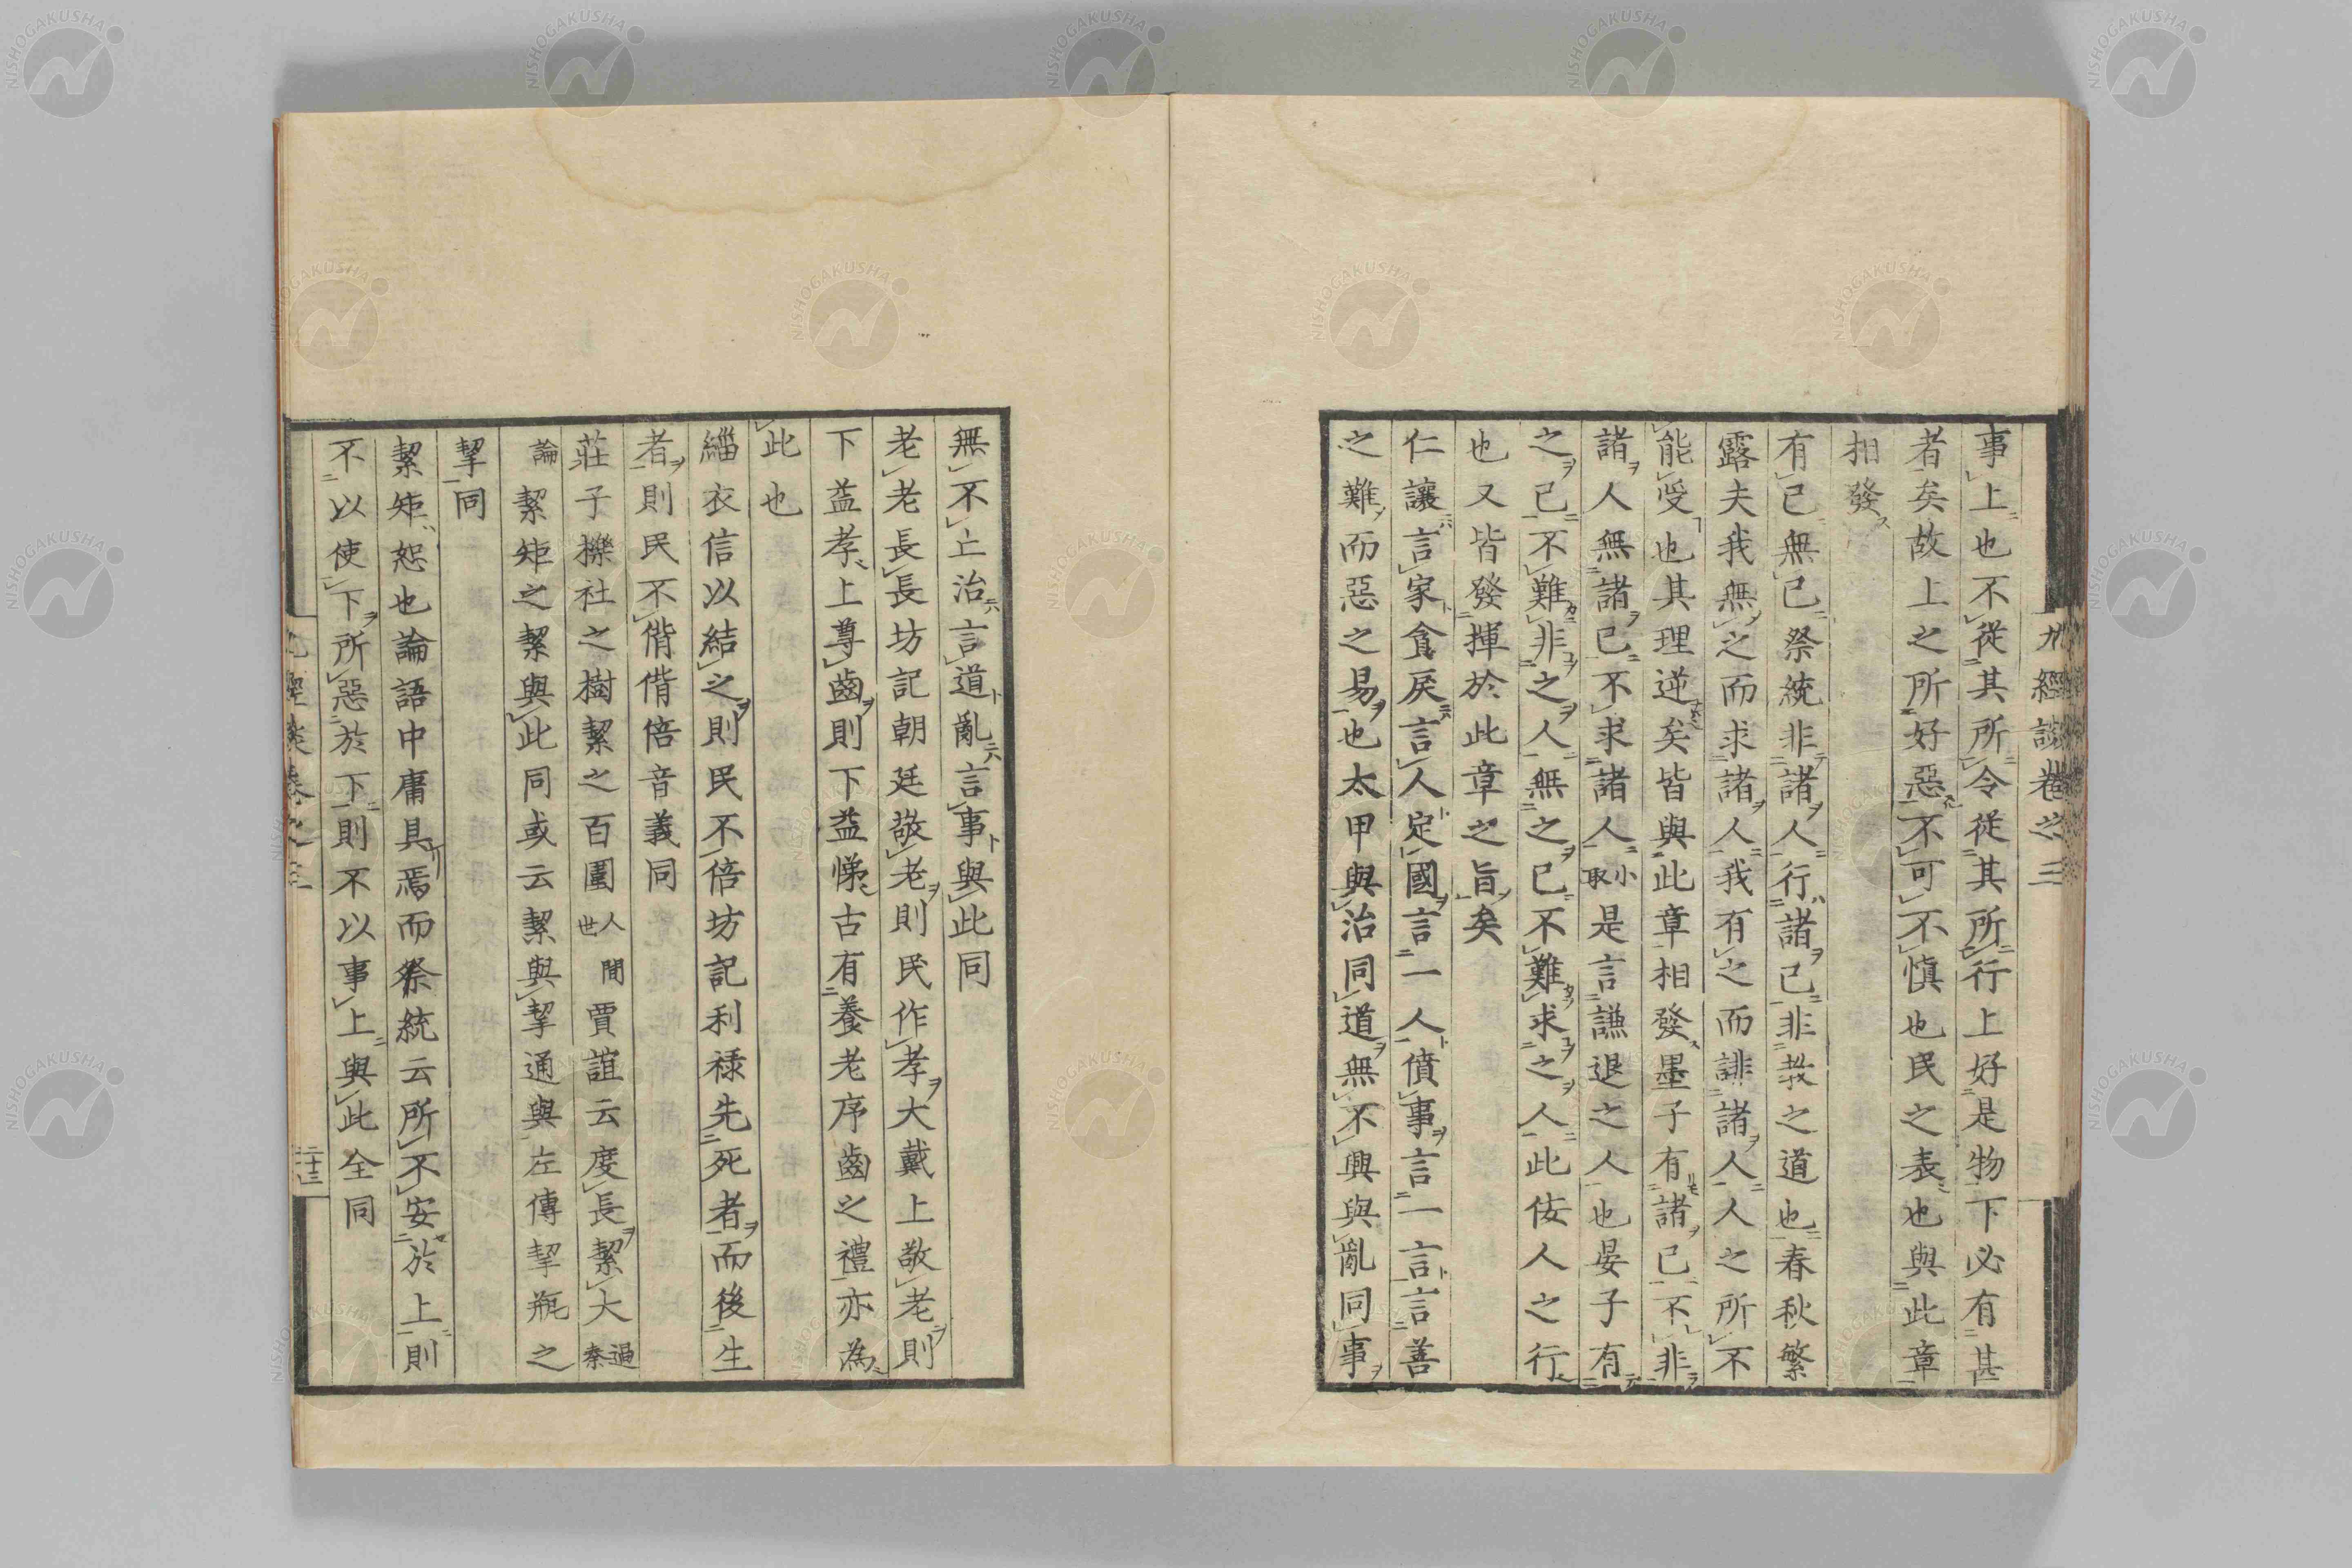 九經談卷之三
事上也不從其所令從其所行上好是物下必有甚
者矣故上之所好惡不可不慎也民之表也與此章
相發
有己無己祭統非諸人行諸己非教之道也春秋繁
露夫我無之而求諸人我有之而誹諸人人之所不
能受也其理逆矣皆與此章相發墨子有諸己不非
諸人無諸己不求諸人小取是言謙退之人也晏子有
之己不難非之人無之己不難求之人此佞人之行
也又皆發揮於此章之旨矣
仁讓言家貪戾言人定國言一人僨事言一言言善
之難而惡之易也太甲與治同道無不興與亂同事
無不上治言道亂言事與此同
老老長長坊記朝廷敬老則民作孝大戴上敬老則
下益孝上尊齒則下益悌古有養老序齒之禮亦為
此也
緇衣信以結之則民不倍坊記利祿先死者而後生
者則民不偝偝倍音義同
莊子櫟社之樹絜之百圍人間世賈誼云度長絜大過秦
論絜矩之絜與此同或云絜與挈通與左傳挈瓶之
挈同
絜矩恕也論語中庸具焉而祭統云所不安於上則
不以使下所惡於下則不以事上與此全同
二十三
NISHOGAKUSHA